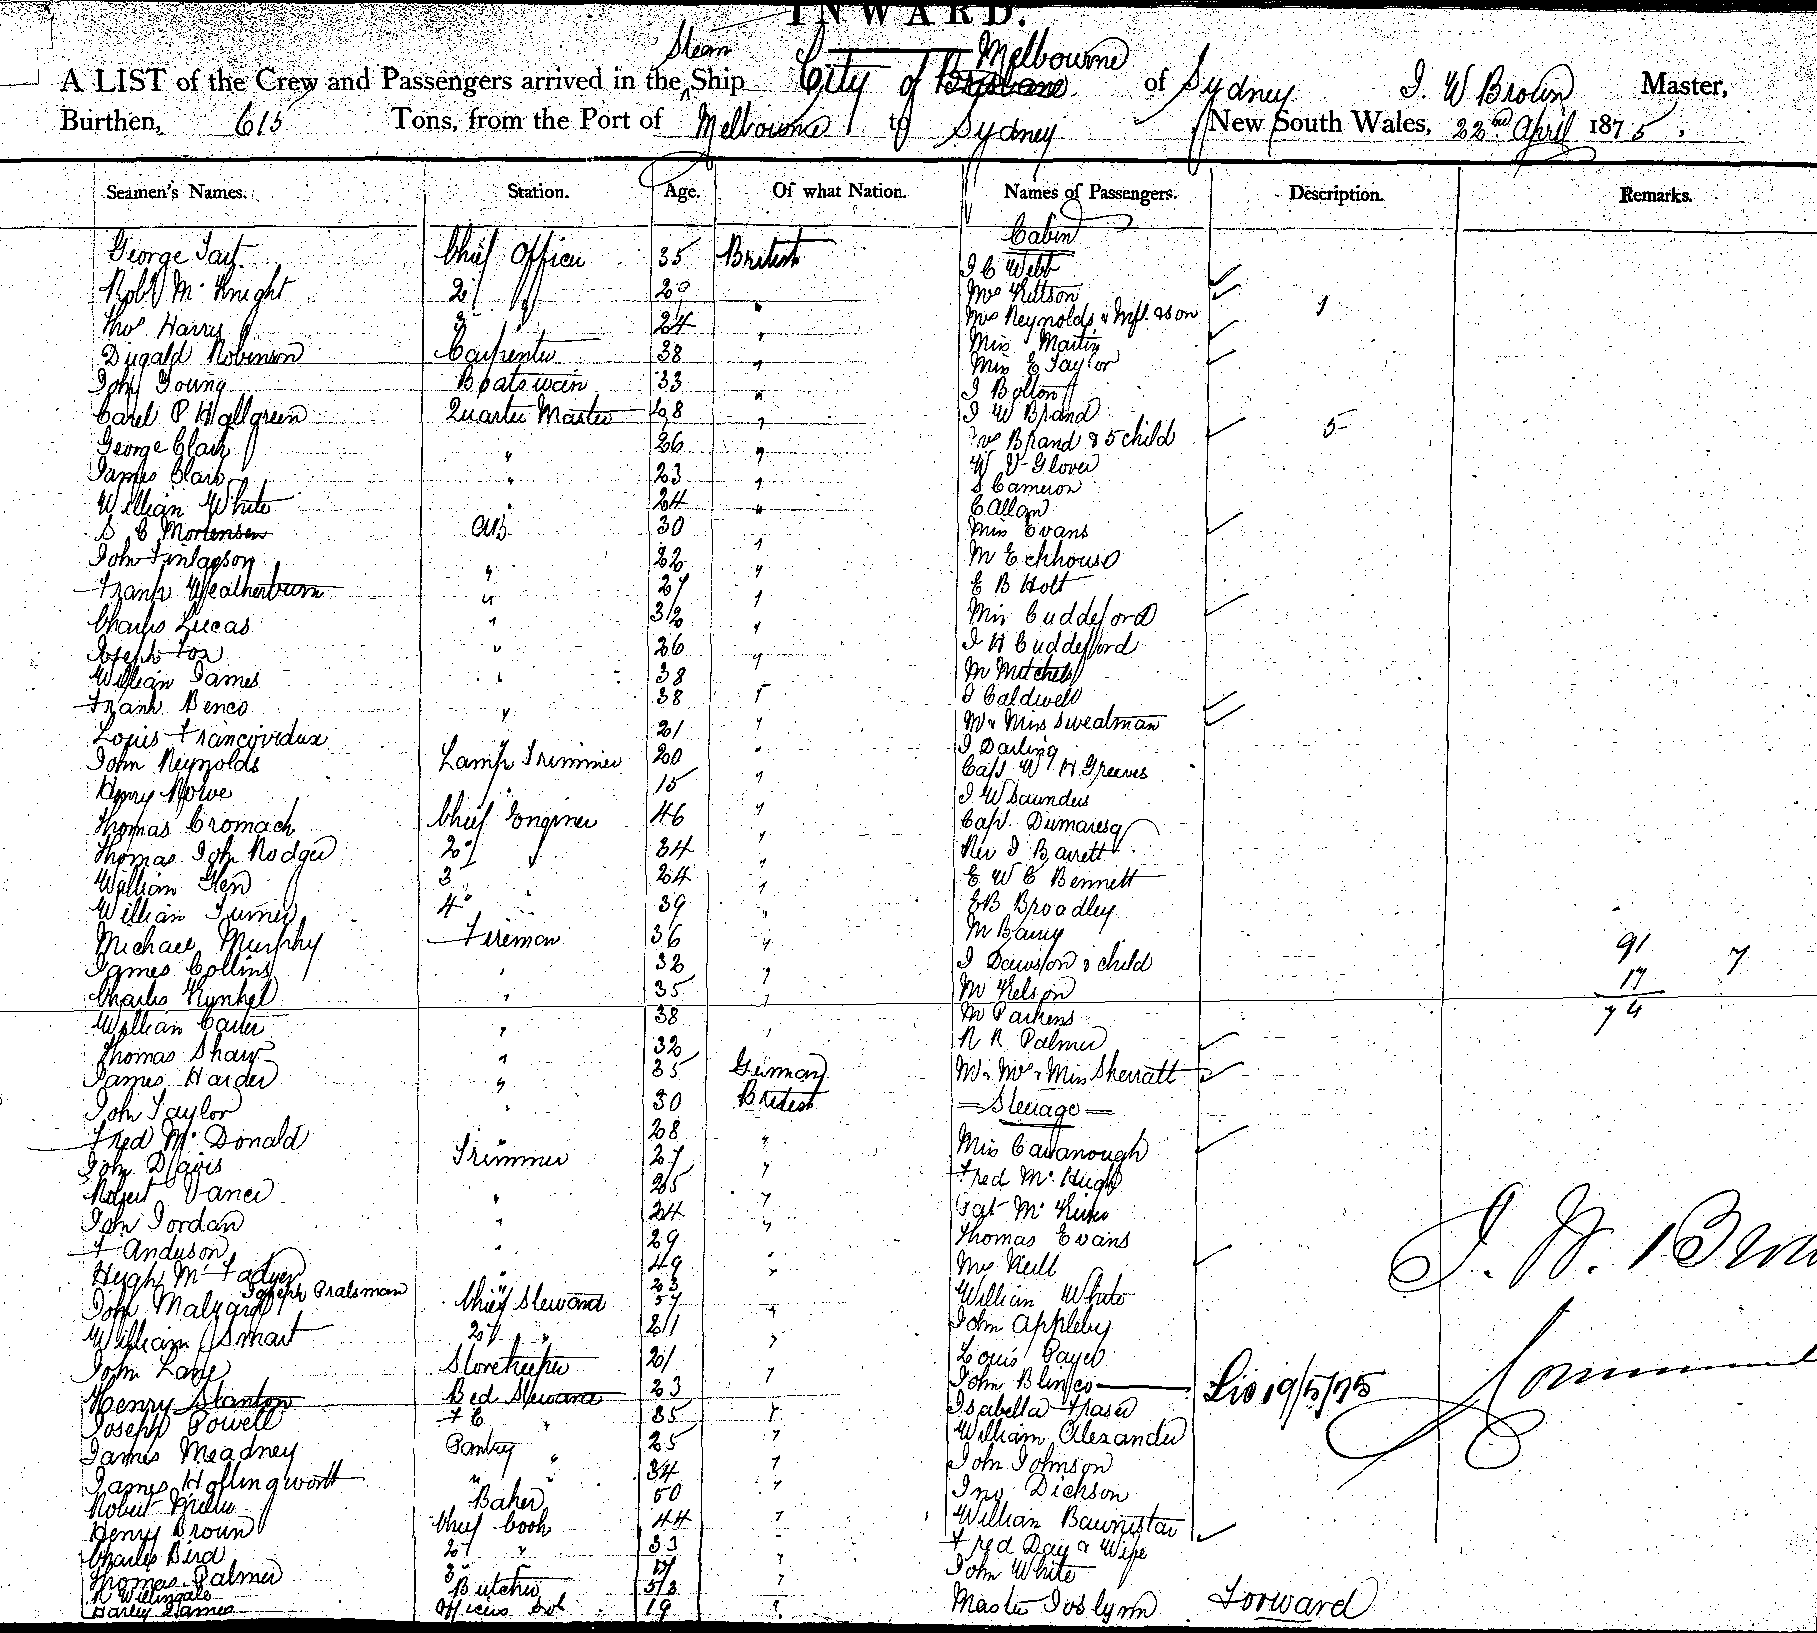 INWARD.
Steam
A LIST of the Crew and Passengers arrived in the Ship City of Brisbane Melbourne of Sydney J. W Brown Master,
Burthen, 615 Tons, from the Port of Melbourne to Sydney New South Wales, 22nd April 1875.
Seamen's Names. Station. Age. Of what Nation. Names of Passengers. Description. Remarks.
Cabin
George Tait Chief Officer 35 British
J C Webb
Robt McKnight 2d " 29 "
Mrs Kittson
Thos Harry 3 " 24 "
Mrs Reynolds & Inft & son 1
Dugald Robinson Carpenter 38 "
Miss Martin
Miss E Taylor
John Young Boatswain 33 "
J Bolton
Carel P Hallgreen Quarter Master 48 "
J W Brand
George Clark " 26 "
Mrs Brand & 5 child 5
James Clark " 23 "
W V Glover
S Cameron
William White " 24 "
C Allan
S C Mortensen AB 30 "
Miss Evans
John Finlayson " 22 "
M Eckhouse
Frank Weatherburn " 27 "
E B Holt
Charles Lucas " 32 "
Miss Cuddeford
Joseph Fox " 26 "
J H Cuddeford
William James " 38 "
M Mitchell
Frank Benco " 38 "
J Caldwell
Mr & Miss Swealman
Louis Francovidux 21 "
J Darling
John Reynolds Lamp Trimmer 20 "
Capt W H Greeves
Henry Rowe " 15 "
J W Saunders
Thomas Cromack Chief Enginer 46 "
Capt. Dumaresq
Thomas John Rodger 2d " 34 "
Rev J Barrett
William Glen 3 " 24 "
E W C Bennett
William Turner 4 " 39 "
E B Broadley
Michael Murphy Fireman 36 "
M Barry 91 7
James Collins " 32 "
J Dawson & child 17
Charles Kunkel " 35 "
M Kelson 74
William Carter " 38 "
M Parkens
Thomas Shaw " 32
R R Palmer
James Harder " 35 German
Mr & Mrs & Miss Sherratt
John Taylor " 30 British
Steerage
Fred McDonald " 28 "
Miss Cavanough
John Davis Trimmer 27 "
Fred McHugh
Robert Vance " 25 "
John Jordan " 24 "
Thomas Evans
F Anderson " 29 "
Mrs Neill
Hugh McFadyen " 49 "
J. W. Brow
Joseph Pralsman " 23
William White
John Malzard Chief Steward 57 "
John Appleby
William Smart 2d " 21 "
Louis Payel
John Lane Storekeeper 21 "
John Blinco 19/5/75
Henry Stanton Bed Steward 23
Isabella Fraser
Joseph Powell F C " 35 "
William Alexander
James Meadney Pantry " 25 "
John Johnson
James Hollingworth " " 34 "
Jno Dickson
Robert Miller Baker 50
William Bannister
Henry Broun Chief Cook 44 "
Fred Day & Wife
Charles Bird 2d " 33 "
John White
Thomas Palmer 3 17 "
R Willingale Butcher 53
Master Joslynn Forward
Harley James Officers Svt 19 "